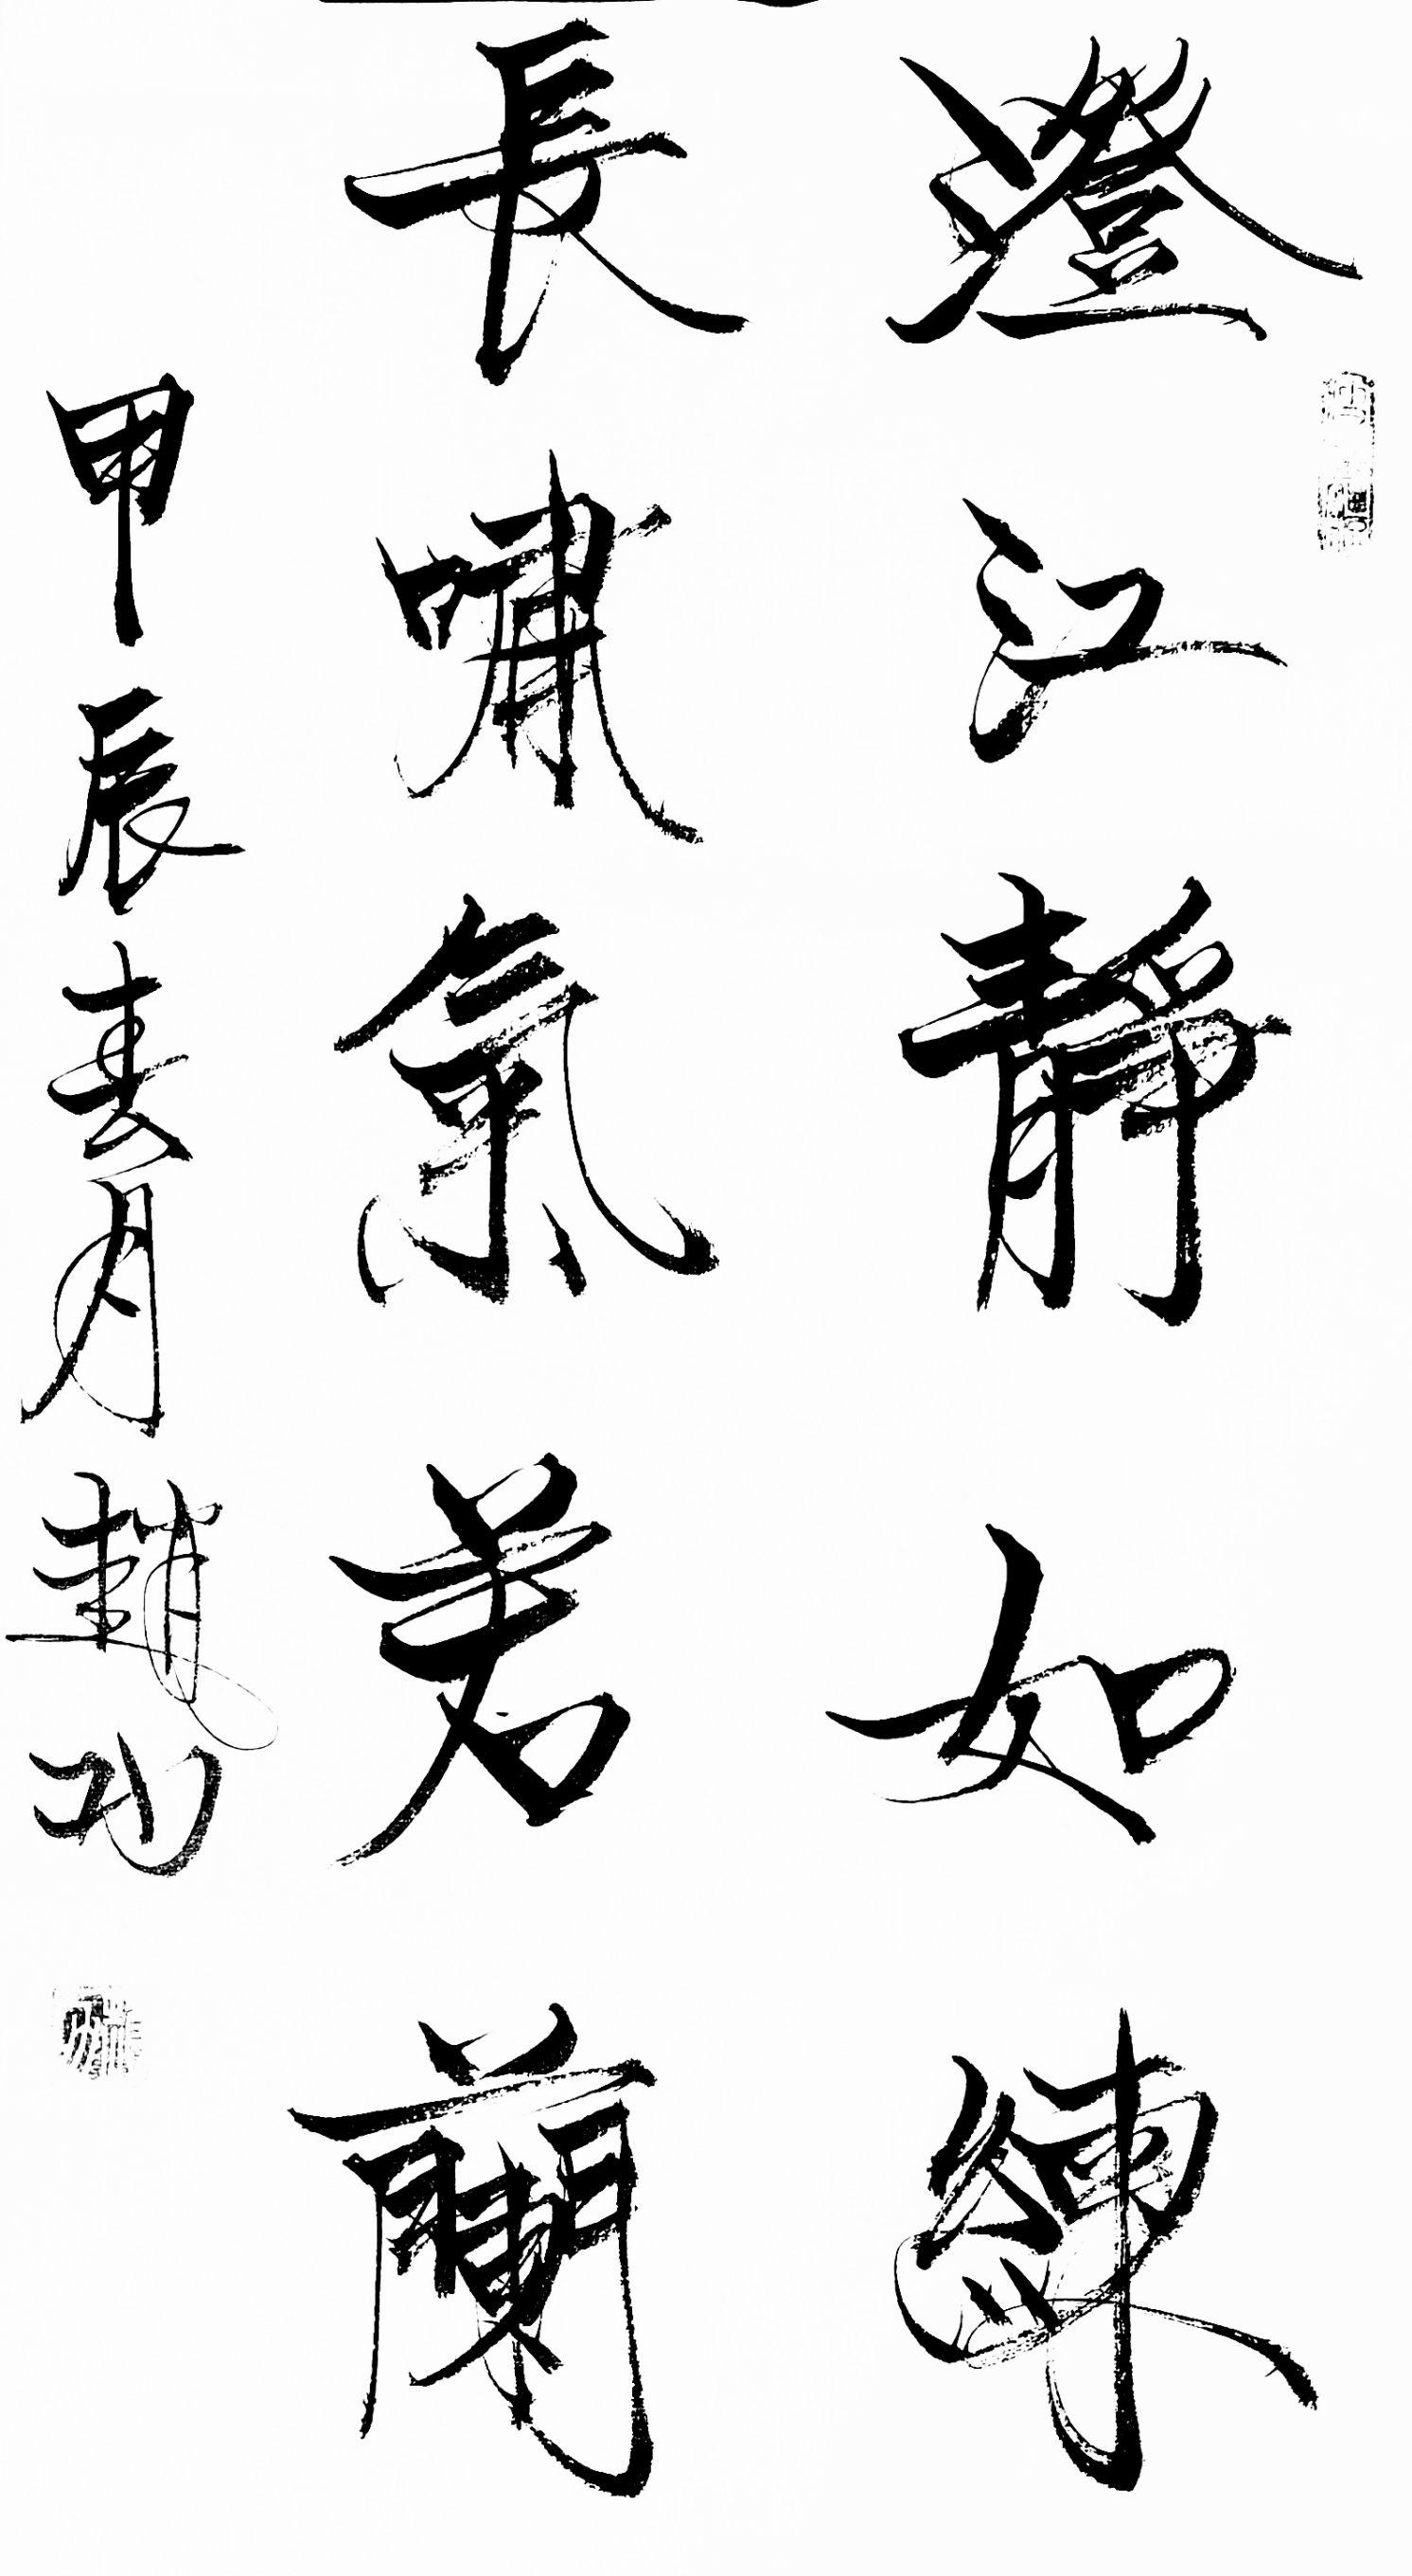 澄江靜如練
長嘯氣若蘭
甲辰春月趙功